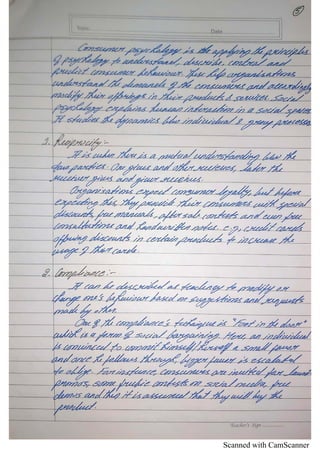 3
Topic
Date
Consumer psychology is the applying the principles
of psychology to understand, describe, control and
predict consumer behaviour. This help organisations
understand the demands of the consumers and accordingly
modify their offerings in their products & services. Social
psychology explains human interaction in a social space.
It studies the dynamics b/w individual & group processes
1. Reciprocity :-
It is when there is a mutual understanding b/w the
two parties. One gives and other receives, later the
receiver gives and giver receives.
Organisations expect consumer loyalty, but before
expecting this, they provide their consumers with special
discounts, free manuals, after sale contests and even free
consultations and handwritten notes. e.g, credit cards
offering discounts in certain products to increase the
usage of their cards.
2. Compliance :-
It can be described as tendency to modify or
change one's behaviour based on suggestions and requests
made by other.
One of the compliance's technique is "Foot in the door"
which is a form of social bargaining. Here, an individual
is convinced to commit himself/herself a small favor
and once he follows through, bigger favor is escalated
to oblige. For instance, consumers are invited for
promos, some contests on social media, free
demos and then it is assumed that they will buy the
product.
Teacher's Sign
Scanned with CamScanner